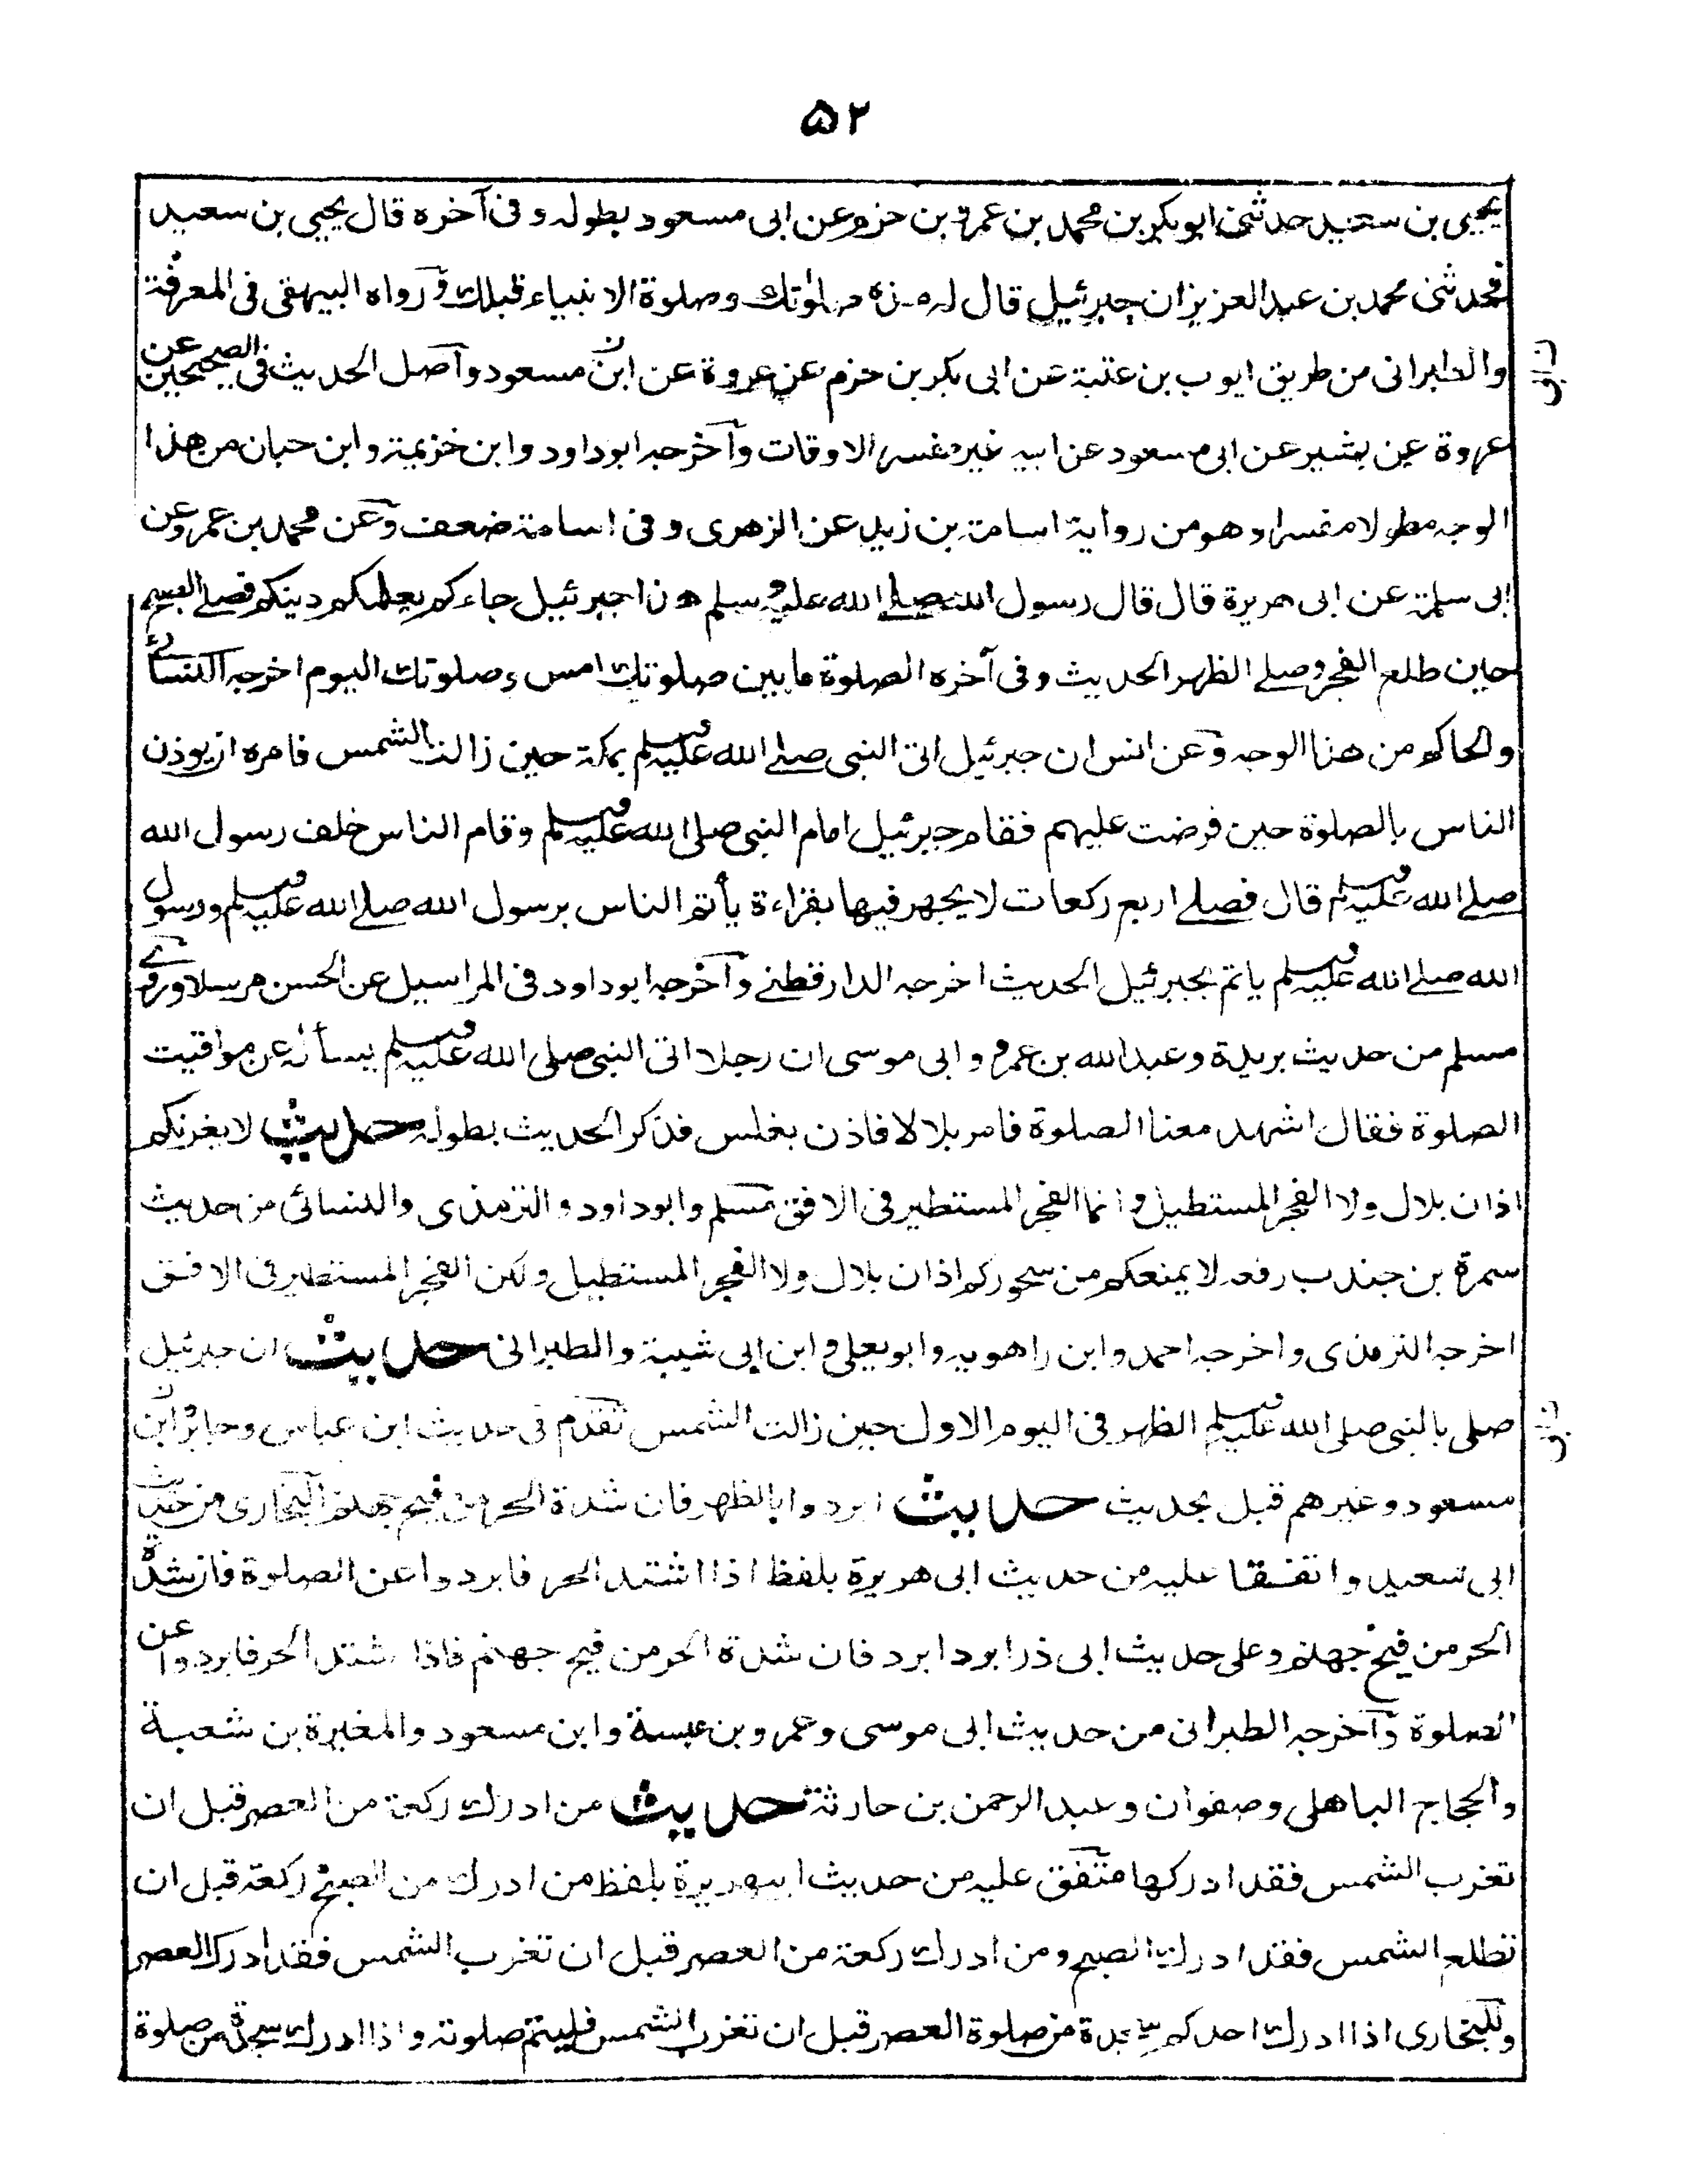 ۵۲
يحيى بن سعيد حدثنى ابو بكر بن محمد بن عمرو بن حزم عن ابى مسعود بطوله وفى آخره قال يحيى بن سعيد
فحدثنى محمد بن عبد العزيز ان جبرئيل قال له هذه صلوتك وصلوة الانبياء قبلك ورواه البيهقى فى المعرفة
والطبرانى من طريق ايوب بن عتبة عن ابى بكر بن حزم عن عروة عن ابن مسعود وآصل الحديث فى الصحيحين عن
عروة عن بشير عن ابى مسعود عن ابيه غير مفسر الاوقات وآخرجه ابوداود وابن خزيمة وابن حبان من هذا
الوجه مطولا مفسرا وهو من رواية اسامة بن زيد عن الزهرى وفى اسامة ضعف وعن محمد بن عمرو عن
ابى سلمة عن ابى هريرة قال قال رسول الله صلے الله عليه وسلم هذا جبرئيل جاءكم يعلمكم دينكم فصلے الصبح
حين طلع الفجر وصلے الظهر الحديث وفى آخره الصلوة ما بين صلوتك امس وصلوتك اليوم اخرجه النسائے
والحاكم من هذا الوجه وعن انس ان جبرئيل اتى النبى صلے الله عليه وسلم بمكة حين زالت الشمس فامره ان يوذن
الناس بالصلوة حين فرضت عليهم فقام جبرئيل امام النبى صلى الله عليه وسلم وقام الناس خلف رسول الله
صلے الله عليه وسلم قال فصلے اربع ركعات لا يجهر فيها بقراءة يأتم الناس برسول الله صلے الله عليه وسلم ورسول
الله صلے الله عليه وسلم ياتم بجبرئيل الحديث اخرجه الدارقطنے وآخرجه ابوداود فى المراسيل عن الحسن مرسلا وروے
مسلم من حديث بريدة وعبد الله بن عمرو وابى موسى ان رجلا اتى النبى صلى الله عليه وسلم يسأله عن مواقيت
الصلوة فقال اشهد معنا الصلوة فامر بلالا فاذن بغلس فذكر الحديث بطوله حديث لا يغرنكم
اذان بلال ولا الفجر المستطيل وانما الفجر المستطير فى الافق مسلم وابوداود والترمذى والنسائى من حديث
سمرة بن جندب رفعه لا يمنعكم من سحوركم اذان بلال ولا الفجر المستطيل ولكن الفجر المستطير فى الافق
اخرجه الترمذى واخرجه احمد وابن راهويه وابو يعلى وابن ابى شيبة والطبرانى حديث ان جبرئيل
صلى بالنبى صلى الله عليه وسلم الظهر فى اليوم الاول حين زالت الشمس تقدم فى حديث ابن عباس وجابر وابن
مسعود وغيرهم قبل بحديث حديث ابردوا بالظهر فان شدة الحر من فيح جهنم البخارى من حديث
ابى سعيد واتفقا عليه من حديث ابى هريرة بلفظ اذا اشتد الحر فابردوا عن الصلوة فان شدة
الحر من فيح جهنم وعلى حديث ابى ذر ابرد ابرد فان شدة الحر من فيح جهنم فاذا اشتد الحر فابردوا عن
الصلوة وآخرجه الطبرانى من حديث ابى موسى وعمرو بن عبسة وابن مسعود والمغيرة بن شعبة
والحجاج الباهلى وصفوان وعبد الرحمن بن حارثة حديث من ادرك ركعة من العصر قبل ان
تغرب الشمس فقد ادركها متفق عليه من حديث ابيهريرة بلفظ من ادرك من الصبح ركعة قبل ان
تطلع الشمس فقد ادرك الصبح ومن ادرك ركعة من العصر قبل ان تغرب الشمس فقد ادرك العصر
وللبخارى اذا ادرك احدكم سجدة من صلوة العصر قبل ان تغرب الشمس فليتم صلوته واذا ادرك سجدة من صلوة